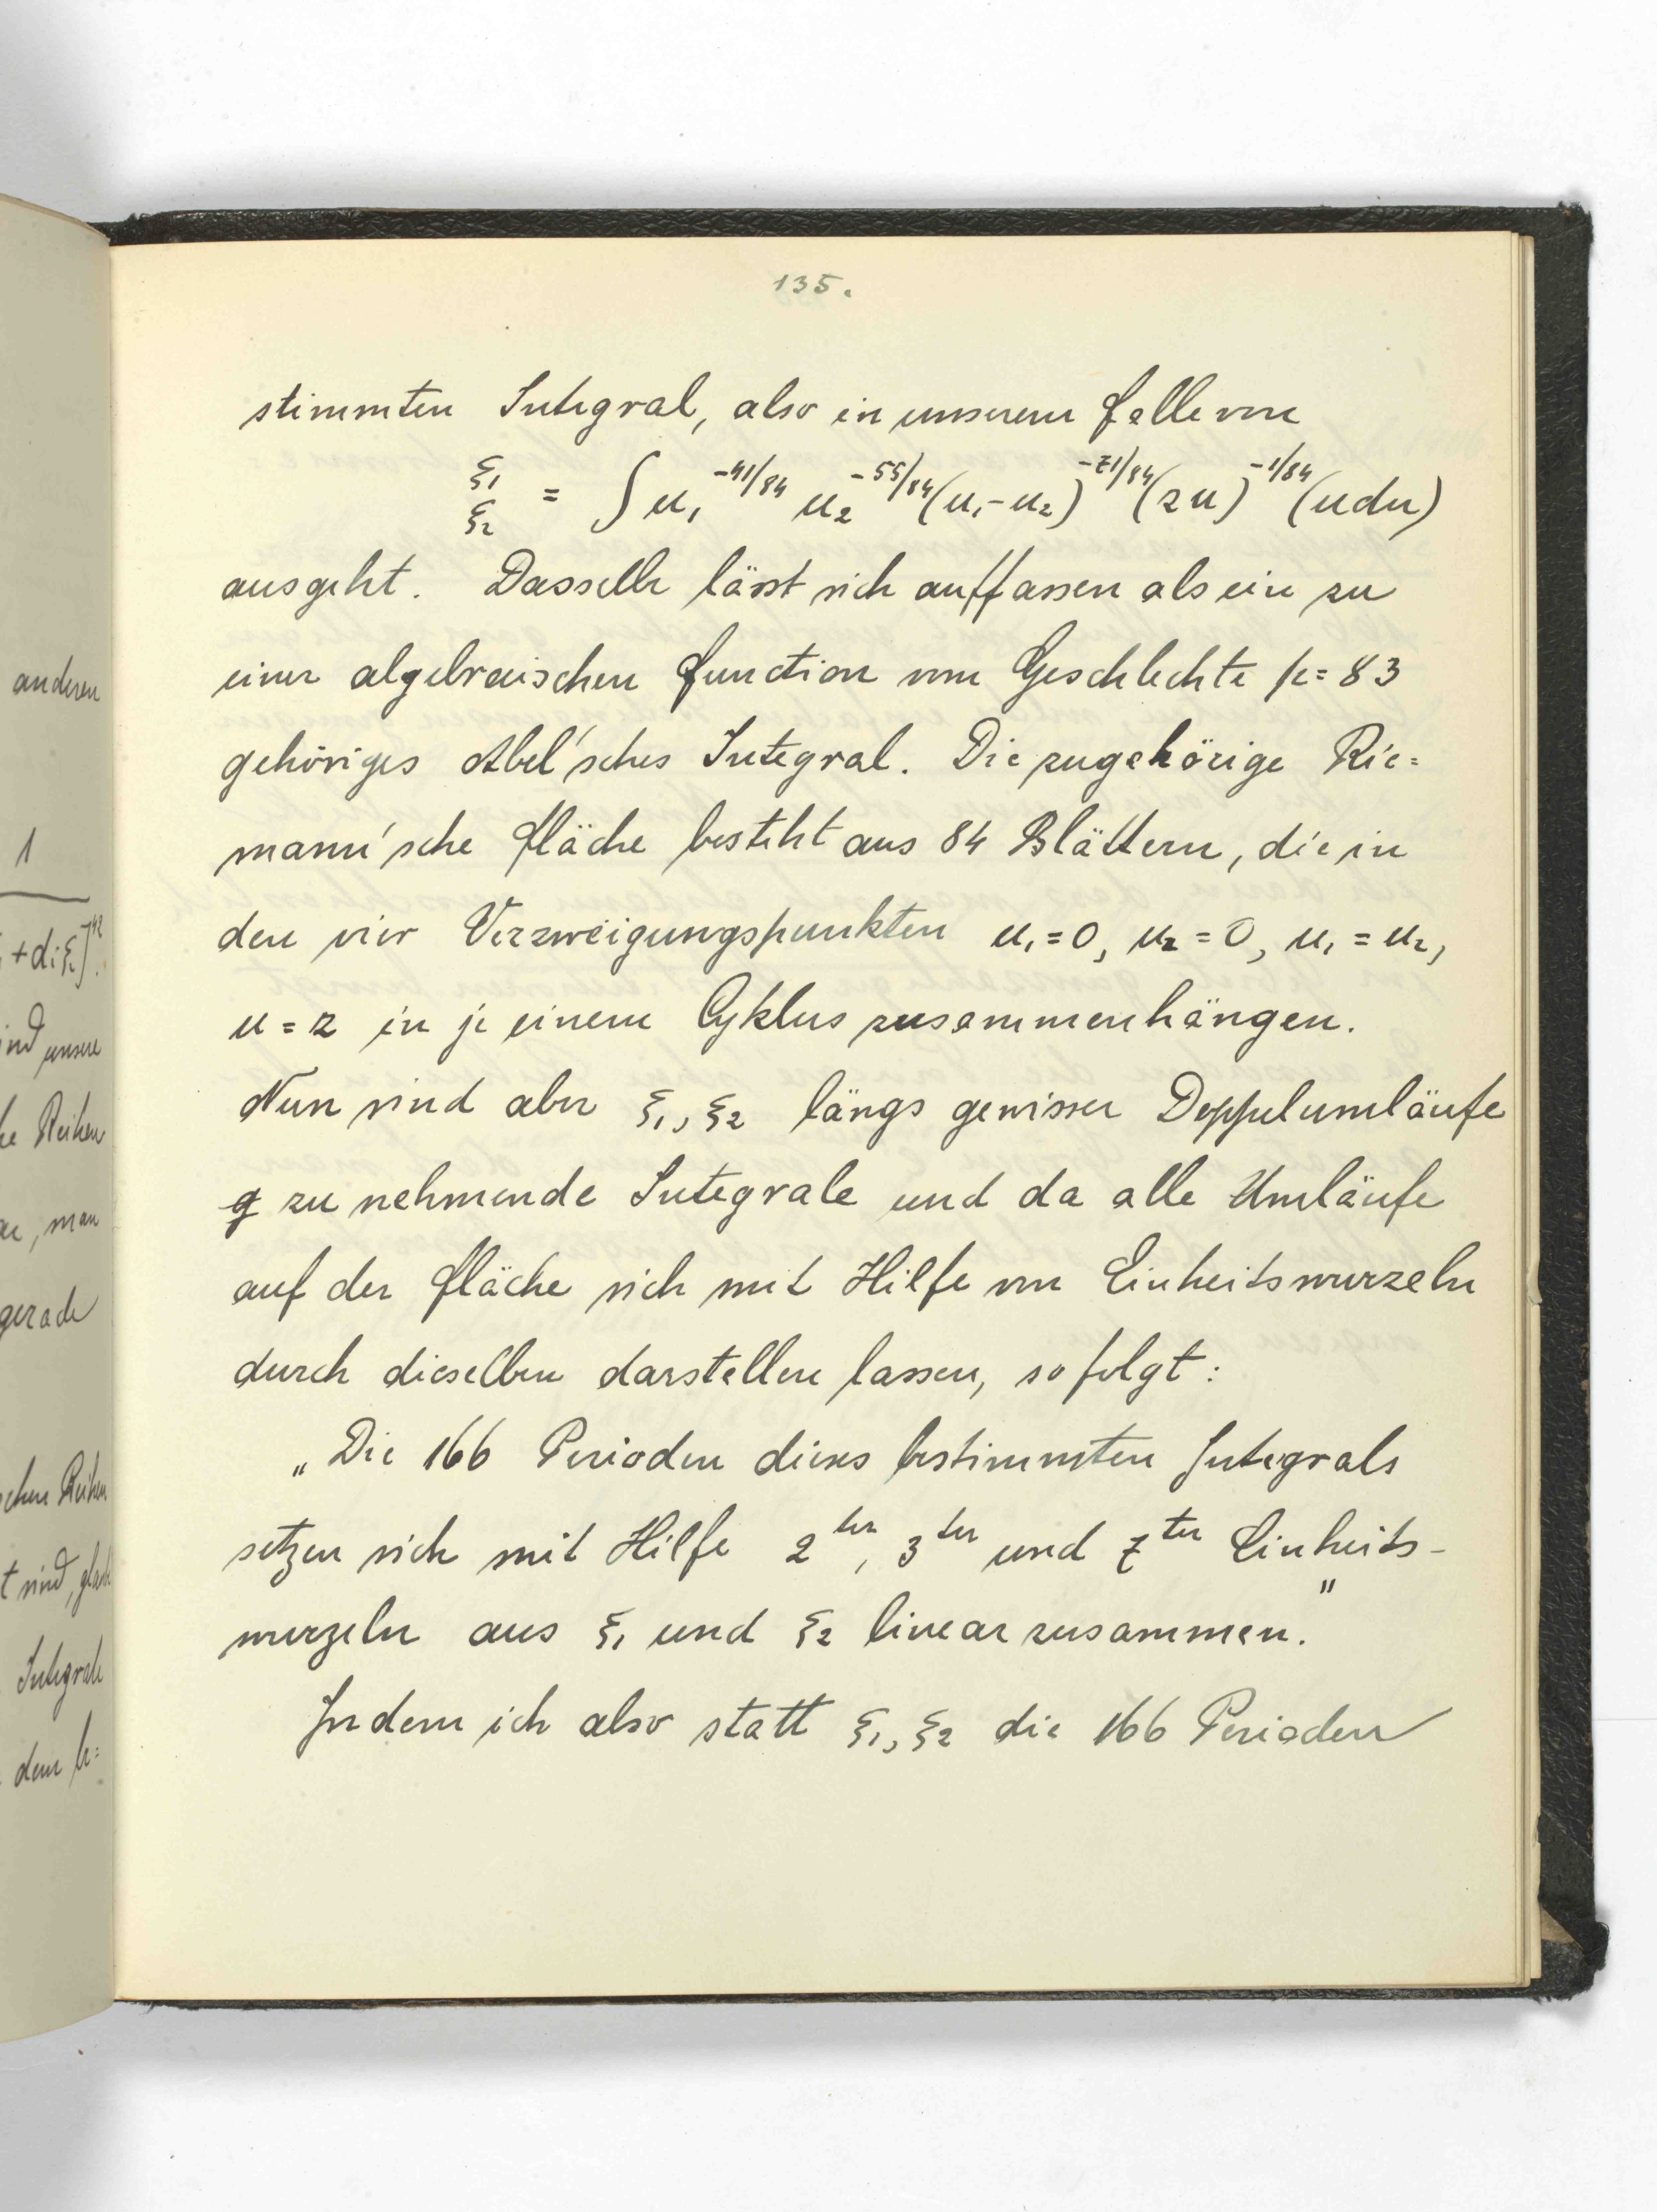 135.
stimmten Integral, also in unserem Falle von
ξ₁
ξ₂ = ∫ u₁^{-41/84} u₂^{-55/84} (u₁-u₂)^{-71/84} (zu)^{-1/84} (udu)
ausgeht. Dasselbe lässt sich auffassen als ein zu
einer algebraischen Function vom Geschlechte p=83
gehöriges Abel'sches Integral. Die zugehörige Rie=
mann'sche Fläche besteht aus 84 Blättern, die in
den vier Verzweigungspunkten u₁=0, u₂=0, u₁=u₂,
u=z in je einem Cyklus zusammenhängen.
Nun sind aber ξ₁, ξ₂ längs gewisser Doppelumläufe
zu nehmende Integrale und da alle Umläufe
auf der Fläche sich mit Hilfe von Einheitswurzeln
durch dieselben darstellen lassen, so folgt:
„Die 166 Perioden dieses bestimmten Integrals
setzen sich mit Hilfe 2ter, 3ter und 7ter Einheits-
wurzeln aus ξ₁ und ξ₂ linear zusammen."
Indem ich also statt ξ₁, ξ₂ die 166 Perioden
anderen
1
+d:ξ₂]⁴².
ind unsere
he Reihen
, man
gerade
chen Reihen
t sind,
Integrale
dem b=